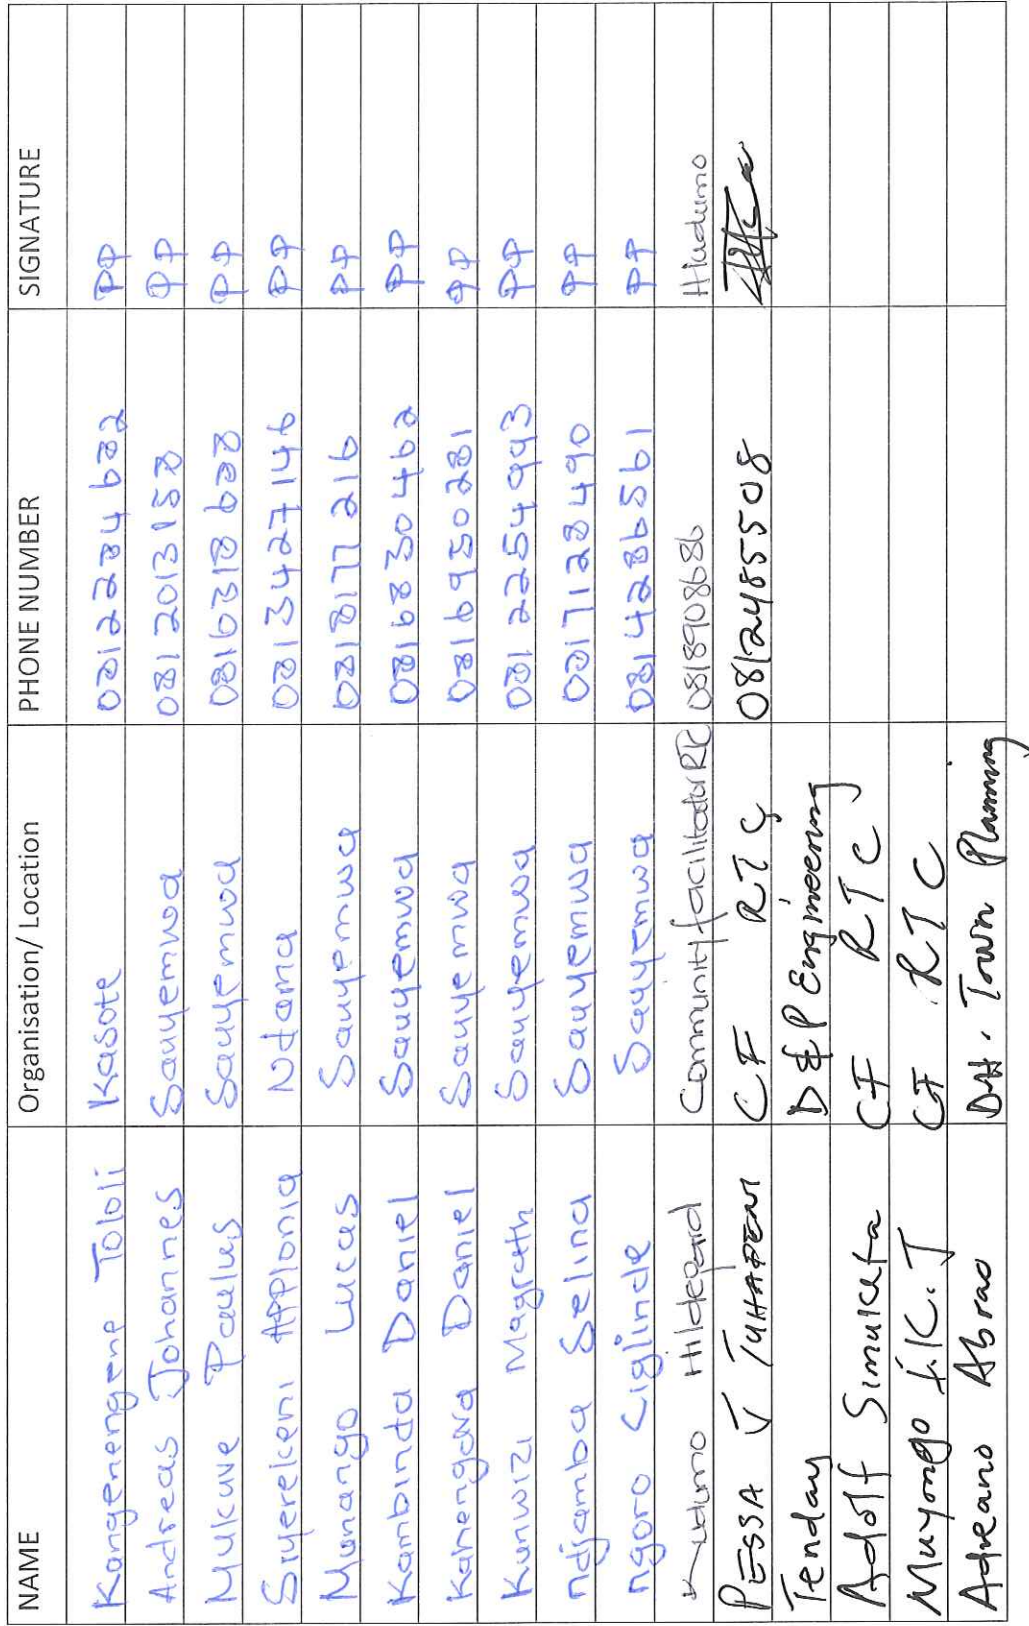 NAME Organisation/ Location PHONE NUMBER SIGNATURE
Kangenengene Tololi Kasote 0812284682 PP
Andreas Johannes Sauyemwa 0812013158 PP
Mukuve Paulus Sauyemwa 0816318638 PP
Siyereleeni Applonia Ndama 0813427146 PP
Munango Lucas Sauyemwa 0818177216 PP
Kambinda Daniel Sauyemwa 0816830462 PP
Kahengova Daniel Sauyemwa 0816950281 PP
Kunwizi Magreth Sauyemwa 0812254993 PP
ndjamba Selina Sauyemwa 0817128490 PP
ngoro Ciglinde Sauyemwa 0814286561 PP
Kudumo Hildegard Community facilitator 0818908686
PESSA J TUHAFENI CF RTC 0812485508
Tenday D&P Engineering
Adolf Simukata CF RTC
Muyongo K.J CF RTC
Adreano Abrao DH. Town Planning